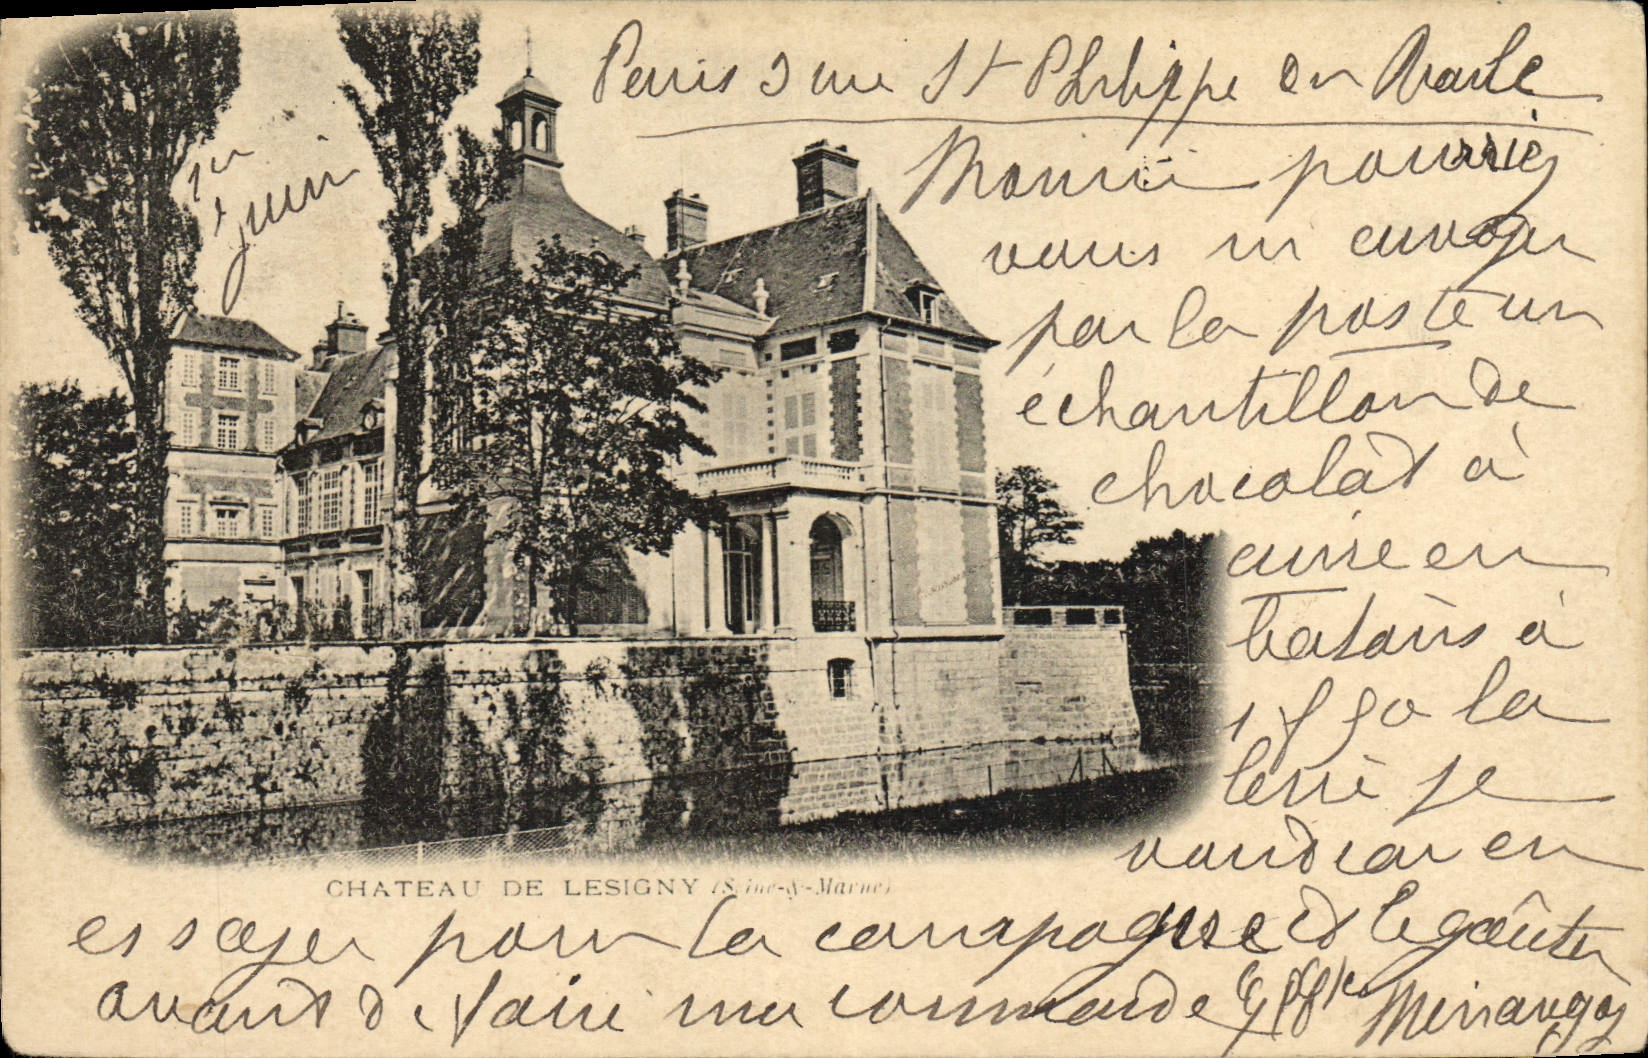 Paris 2 rue St Philippe du Roule
1er
juin
Monsieur pourriez
vous m envoyer
par la poste un
échantillon de
chocolat à
cuire en
batons à
1 f 90 la
livre je
voudrai en
essayer pour la campagne et le goûter
avant de faire ma commande
CHATEAU DE LESIGNY (Seine-&-Marne)